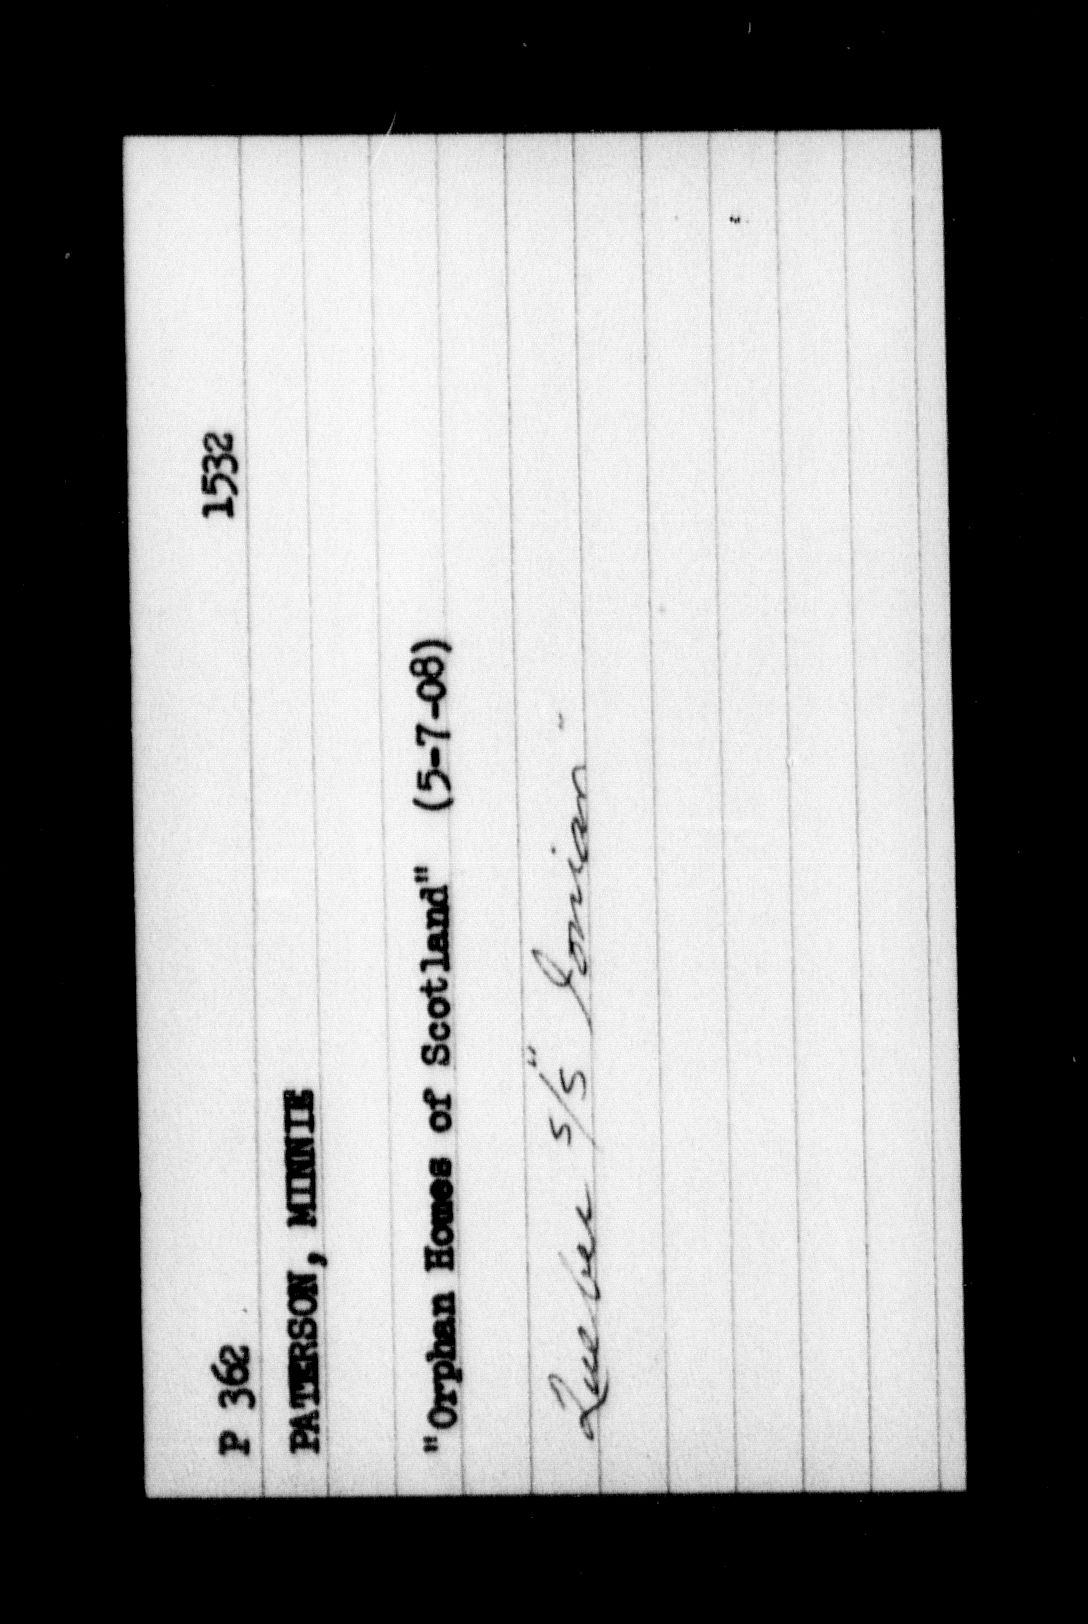 P 362 1532
PATERSON, MINNIE
"Orphan Homes of Scotland" (5-7-08)
Quebec S/S "Ionian"